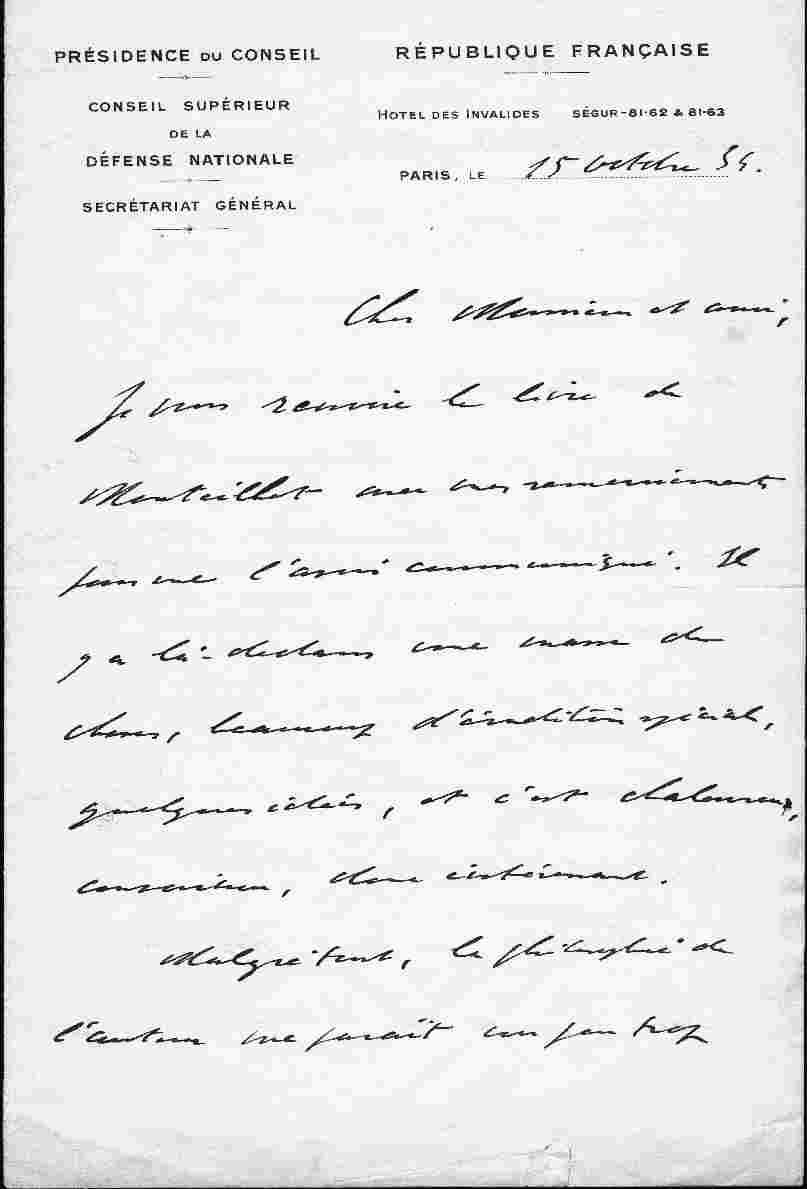 PRÉSIDENCE DU CONSEIL
CONSEIL SUPÉRIEUR
DE LA
DÉFENSE NATIONALE
SECRÉTARIAT GÉNÉRAL
RÉPUBLIQUE FRANÇAISE
HOTEL DES INVALIDES SÉGUR-81-62 & 81-63
PARIS, LE 15 octobre 34.
Cher Monsieur et ami,
Je vous renvoie le livre de
Monteilhet avec mes remerciements
pour me l'avoir communiqué. Il
y a là-dedans une masse de
choses, beaucoup d'érudition spéciale,
quelques idées, et c'est chaleureux,
consciencieux, donc intéressant.
Malgré tout, la philosophie de
l'auteur me paraît un peu trop